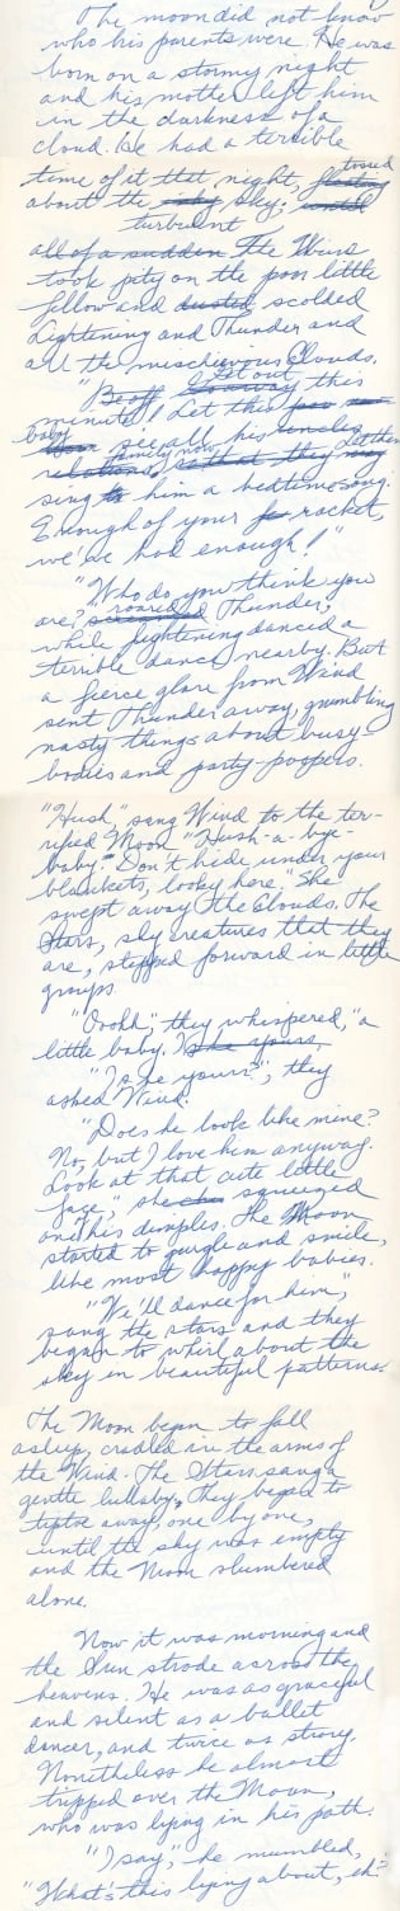 The moon did not know
who his parents were. He was
born on a stormy night
and his mother left him
in the darkness of a
cloud. He had a terrible
time of it that night, floating tossed
about the inky sky, until
turbulent
all of a sudden The Wind
took pity on the poor little
fellow and dusted scolded
Lightening and Thunder and
all the mischievous Clouds.
"Be off Get out this
minute! Let this poor
baby see all his uncles
relations, family now so that they may Let them
sing to him a bedtime song.
Enough of your racket,
we've had enough!"
"Who do you think you
are?" screamed roared Thunder,
while Lightening danced a
terrible dance nearby. But
a fierce glare from Wind
sent Thunder away, grumbling
nasty things about busy-
bodies and party-poopers.
"Hush," sang Wind to the ter-
rified Moon "Hush-a-bye-
baby." Don't hide under your
blankets, looky here." She
swept away the Clouds. The
Stars, shy creatures that they
are, stepped forward in little
groups.
"Ooohh," they whispered, "a
little baby. Is he yours,
"Is he yours?", they
asked Wind.
"Does he look like mine?
No, but I love him anyway.
Look at that cute little
face," she squeezed
his dimples. The Moon
started to gurgle and smile,
like most happy babies.
"We'll dance for him,"
sang the stars and they
began to whirl about the
sky in beautiful patterns.
The Moon began to fall
asleep, cradled in the arms of
the Wind. The Stars sang a
gentle lullaby, They began to
tiptoe away, one by one,
until the sky was empty
and the Moon slumbered
alone.
Now it was morning and
the Sun strode across the
heavens. He was as graceful
and silent as a ballet
dancer, and twice as strong.
Nonetheless he almost
tripped over the Moon,
who was lying in his path.
"I say," he mumbled,
"What's this lying about, eh?